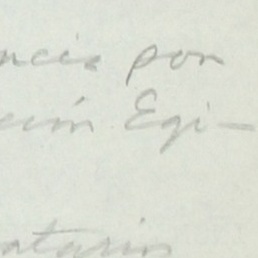 ncia por
ción Egi-
atario